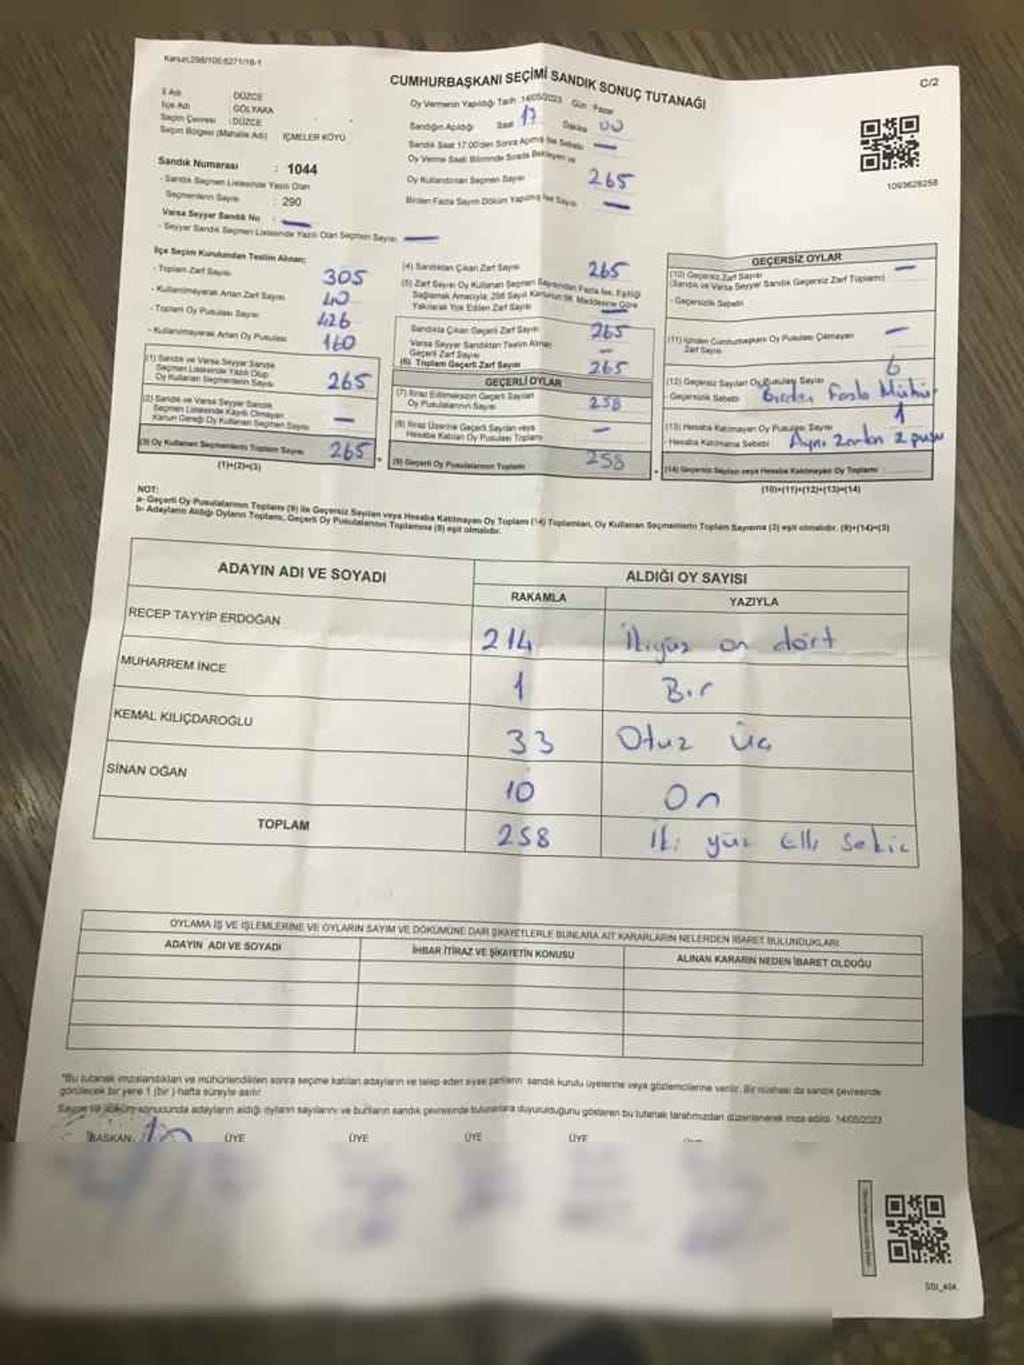 Kanun;298/106:6271/18-1
C/2
CUMHURBAŞKANI SEÇİMİ SANDIK SONUÇ TUTANAĞI
İl Adı DÜZCE
İlçe Adı GÖLYAKA
Seçim Çevresi : DÜZCE
Seçim Bölgesi (Mahalle Adı) İÇMELER KÖYÜ
Sandık Numarası : 1044
- Sandık Seçmen Listesinde Yazılı Olan
Seçmenlerin Sayısı : 290
Varsa Seyyar Sandık No : —
- Seyyar Sandık Seçmen Listesinde Yazılı Olan Seçmen Sayısı —
Oy Vermenin Yapıldığı Tarih 14/05/2023 Gün Pazar
Sandığın Açıldığı Saat 17 Dakika 00
Sandık Saat 17.00'den Sonra Açılmış İse Sebebi —
Oy Verme Saati Bitiminde Sırada Bekleyen ve
Oy Kullandırılan Seçmen Sayısı 265
Birden Fazla Sayım Döküm Yapılmış İse Sayısı —
1093628258
İlçe Seçim Kurulundan Teslim Alınan;
- Toplam Zarf Sayısı 305
- Kullanılmayarak Artan Zarf Sayısı 40
- Toplam Oy Pusulası Sayısı 426
- Kullanılmayarak Artan Oy Pusulası 160
(1) Sandık ve Varsa Seyyar Sandık
Seçmen Listesinde Yazılı Olup
Oy Kullanan Seçmenlerin Sayısı 265
(2) Sandık ve Varsa Seyyar Sandık
Seçmen Listesinde Kayıtlı Olmayan
Kanun Gereği Oy Kullanan Seçmen Sayısı —
(3) Oy Kullanan Seçmenlerin Toplam Sayısı 265
(1)+(2)=(3)
(4) Sandıktan Çıkan Zarf Sayısı 265
(5) Zarf Sayısı Oy Kullanan Seçmen Sayısından Fazla İse, Eşitliği
Sağlamak Amacıyla; 298 Sayılı Kanunun 98. Maddesine Göre
Yakılarak Yok Edilen Zarf Sayısı —
Sandıkta Çıkan Geçerli Zarf Sayısı 265
Varsa Seyyar Sandıktan Teslim Alınan
Geçerli Zarf Sayısı —
(6) Toplam Geçerli Zarf Sayısı 265
GEÇERLİ OYLAR
(7) İtiraz Edilmeksizin Geçerli Sayılan
Oy Pusulalarının Sayısı 258
(8) İtiraz Üzerine Geçerli Sayılan veya
Hesaba Katılan Oy Pusulası Toplamı —
(9) Geçerli Oy Pusulalarının Toplamı 258
GEÇERSİZ OYLAR
(10) Geçersiz Zarf Sayısı —
(Sandık ve Varsa Seyyar Sandık Geçersiz Zarf Toplamı)
- Geçersizlik Sebebi
(11) İçinden Cumhurbaşkanı Oy Pusulası Çıkmayan
Zarf Sayısı —
(12) Geçersiz Sayılan Oy Pusulası Sayısı 6
- Geçersizlik Sebebi Birden Fazla Mühür
(13) Hesaba Katılmayan Oy Pusulası Sayısı 1
- Hesaba Katılmama Sebebi Aynı Zarftan 2 pusu
(14) Geçersiz Sayılan veya Hesaba Katılmayan Oy Toplamı
(10)+(11)+(12)+(13)=(14)
NOT:
a- Geçerli Oy Pusulalarının Toplamı (9) ile Geçersiz Sayılan veya Hesaba Katılmayan Oy Toplamı (14) Toplamları, Oy Kullanan Seçmenlerin Toplam Sayısına (3) eşit olmalıdır. (9)+(14)=(3)
b- Adayların Aldığı Oyların Toplamı, Geçerli Oy Pusulalarının Toplamına (9) eşit olmalıdır.
ADAYIN ADI VE SOYADI
ALDIĞI OY SAYISI
RAKAMLA YAZIYLA
RECEP TAYYİP ERDOĞAN 214 İkiyüz on dört
MUHARREM İNCE 1 Bir
KEMAL KILIÇDAROĞLU 33 Otuz üç
SİNAN OĞAN 10 On
TOPLAM 258 İki yüz Elli sekiz
OYLAMA İŞ VE İŞLEMLERİNE VE OYLARIN SAYIM VE DÖKÜMÜNE DAİR ŞİKAYETLERLE BUNLARA AİT KARARLARIN NELERDEN İBARET BULUNDUKLARI
ADAYIN ADI VE SOYADI İHBAR İTİRAZ VE ŞİKAYETİN KONUSU ALINAN KARARIN NEDEN İBARET OLDUĞU
"Bu tutanak imzalandıktan ve mühürlendikten sonra seçime katılan adayların ve talep eden siyasi partilerin sandık kurulu üyelerine veya gözlemcilerine verilir. Bir nüshası da sandık çevresinde
görülecek bir yere 1 (bir) hafta süreyle asılır.
Sayım ve döküm sonucunda adayların aldığı oyların sayılarını ve bunların sandık çevresinde bulunanlara duyurulduğunu gösteren bu tutanak tarafımızdan düzenlenerek imza edildi. 14/05/2023
BAŞKAN ÜYE ÜYE ÜYE ÜYE